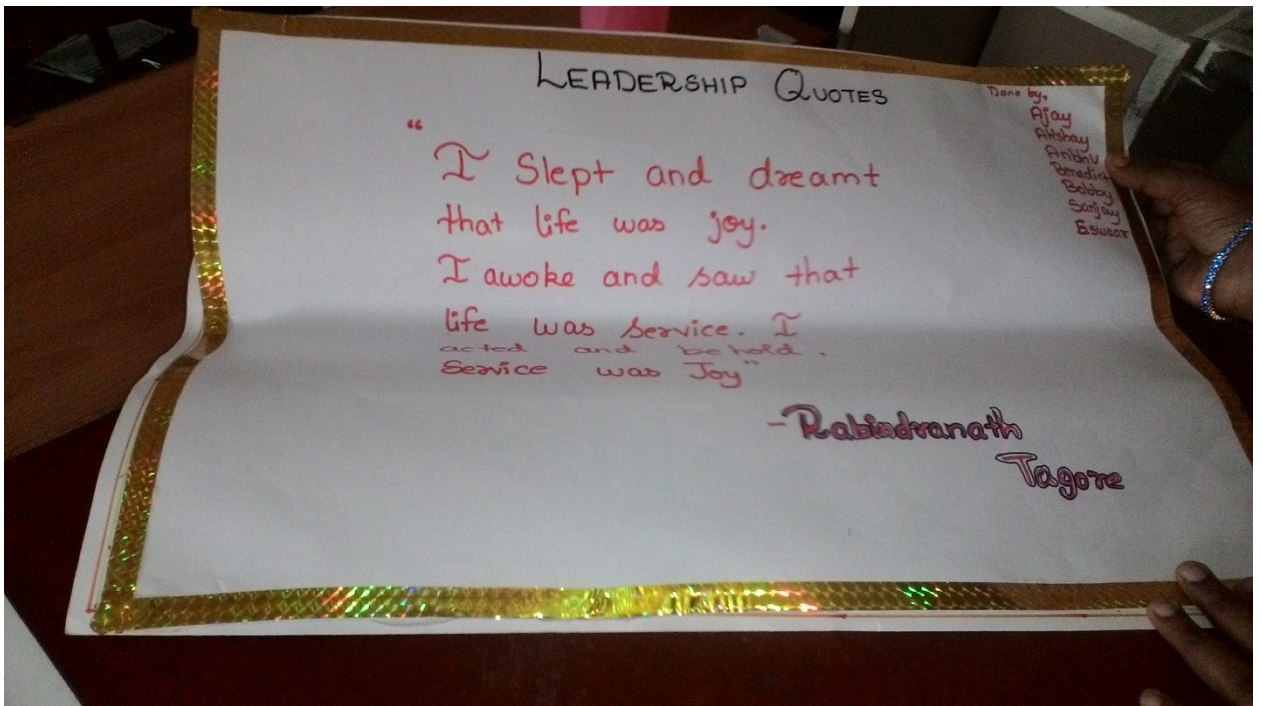 LEADERSHIP QUOTES
Done by,
Ajay
Akshay
Anbhu
Benedict
Bobby
Sanjay
Eswaar
“
I Slept and dreamt
that life was joy.
I awoke and saw that
life was service. I
acted and behold.
Service was Joy”
-Rabindranath
Tagore